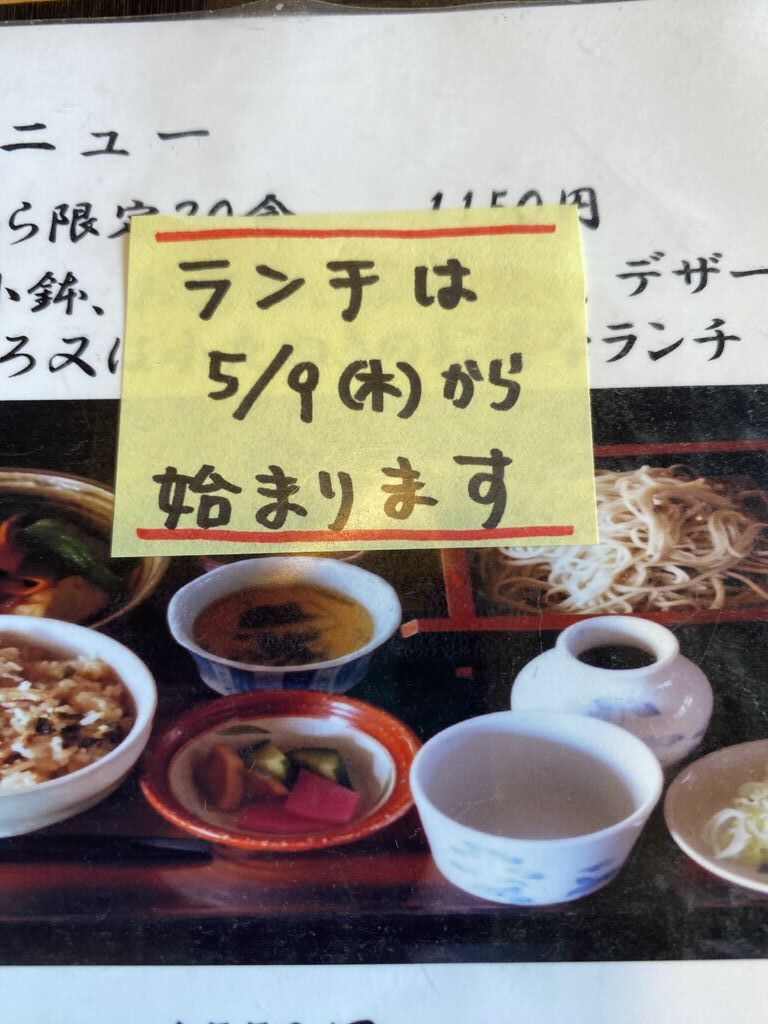 ニュー
ら限定20食 1150円
ランチは
5/9(木)から
始まります
小鉢、
、デザー
ろ又は
ランチ